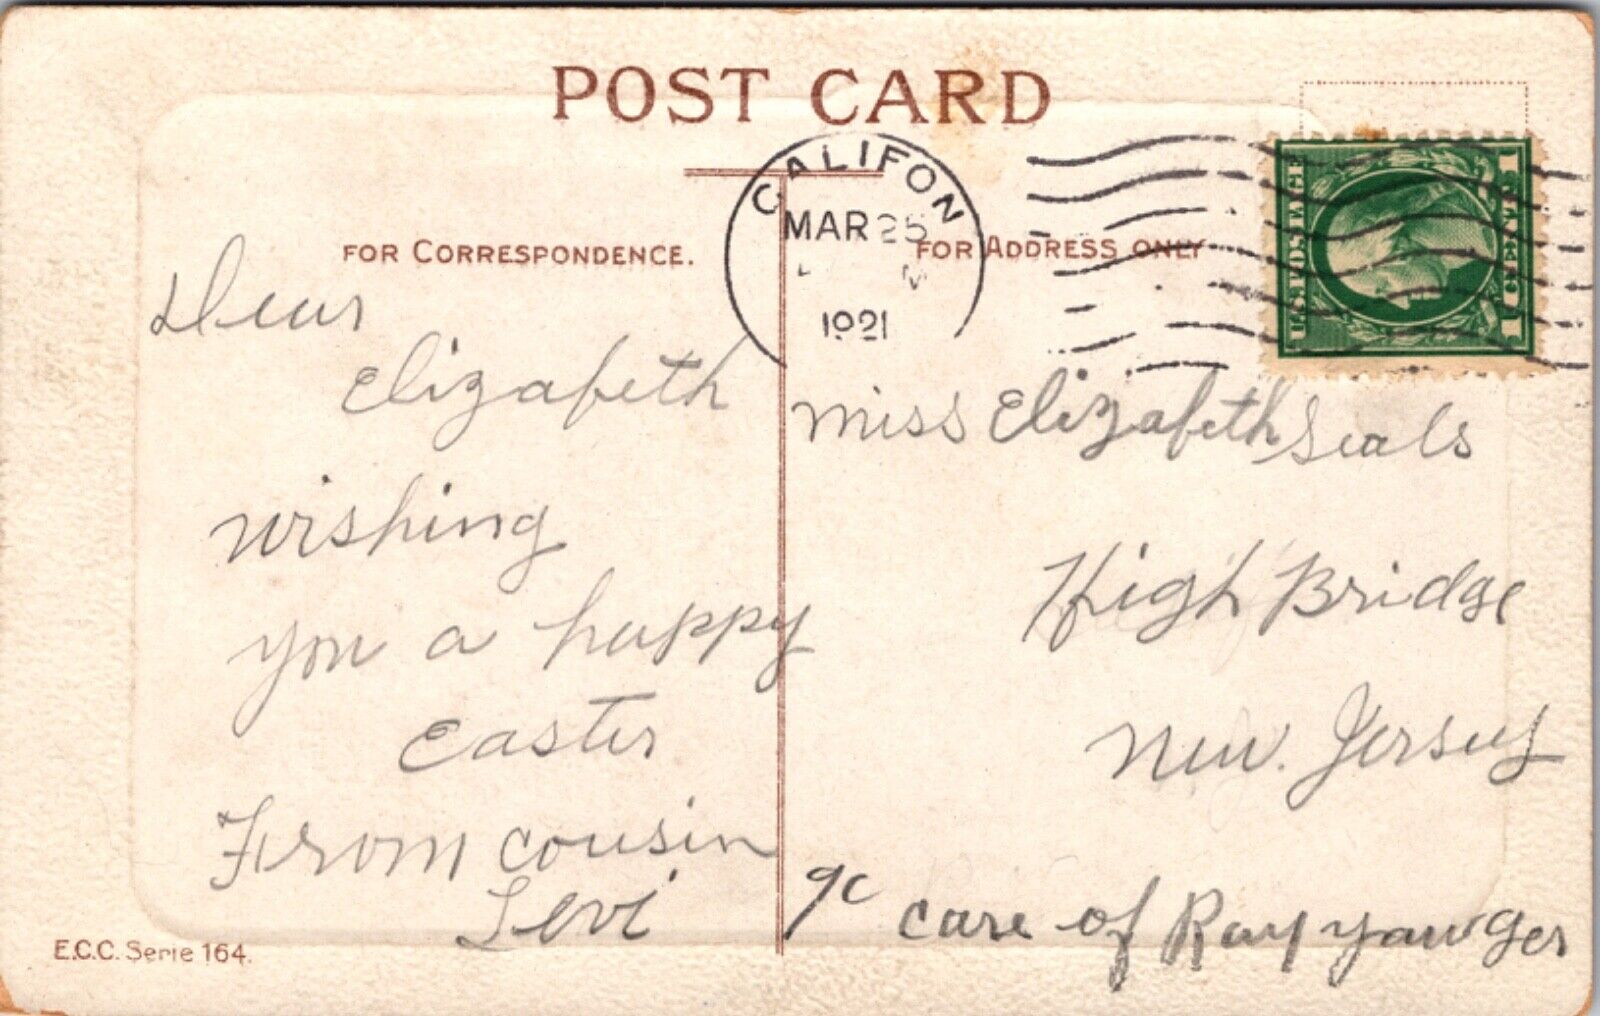 POST CARD
CALIFON
MAR 25
1921
U.S. POSTAGE
1 CENT 1
FOR CORRESPONDENCE.
FOR ADDRESS ONLY
Dear
Elizabeth
wishing
you a happy
Easter
From cousin
Levi
Miss Elizabeth Seals
High Bridge
New. Jersey
care of Ray Yawger
E.C.C. Serie 164.